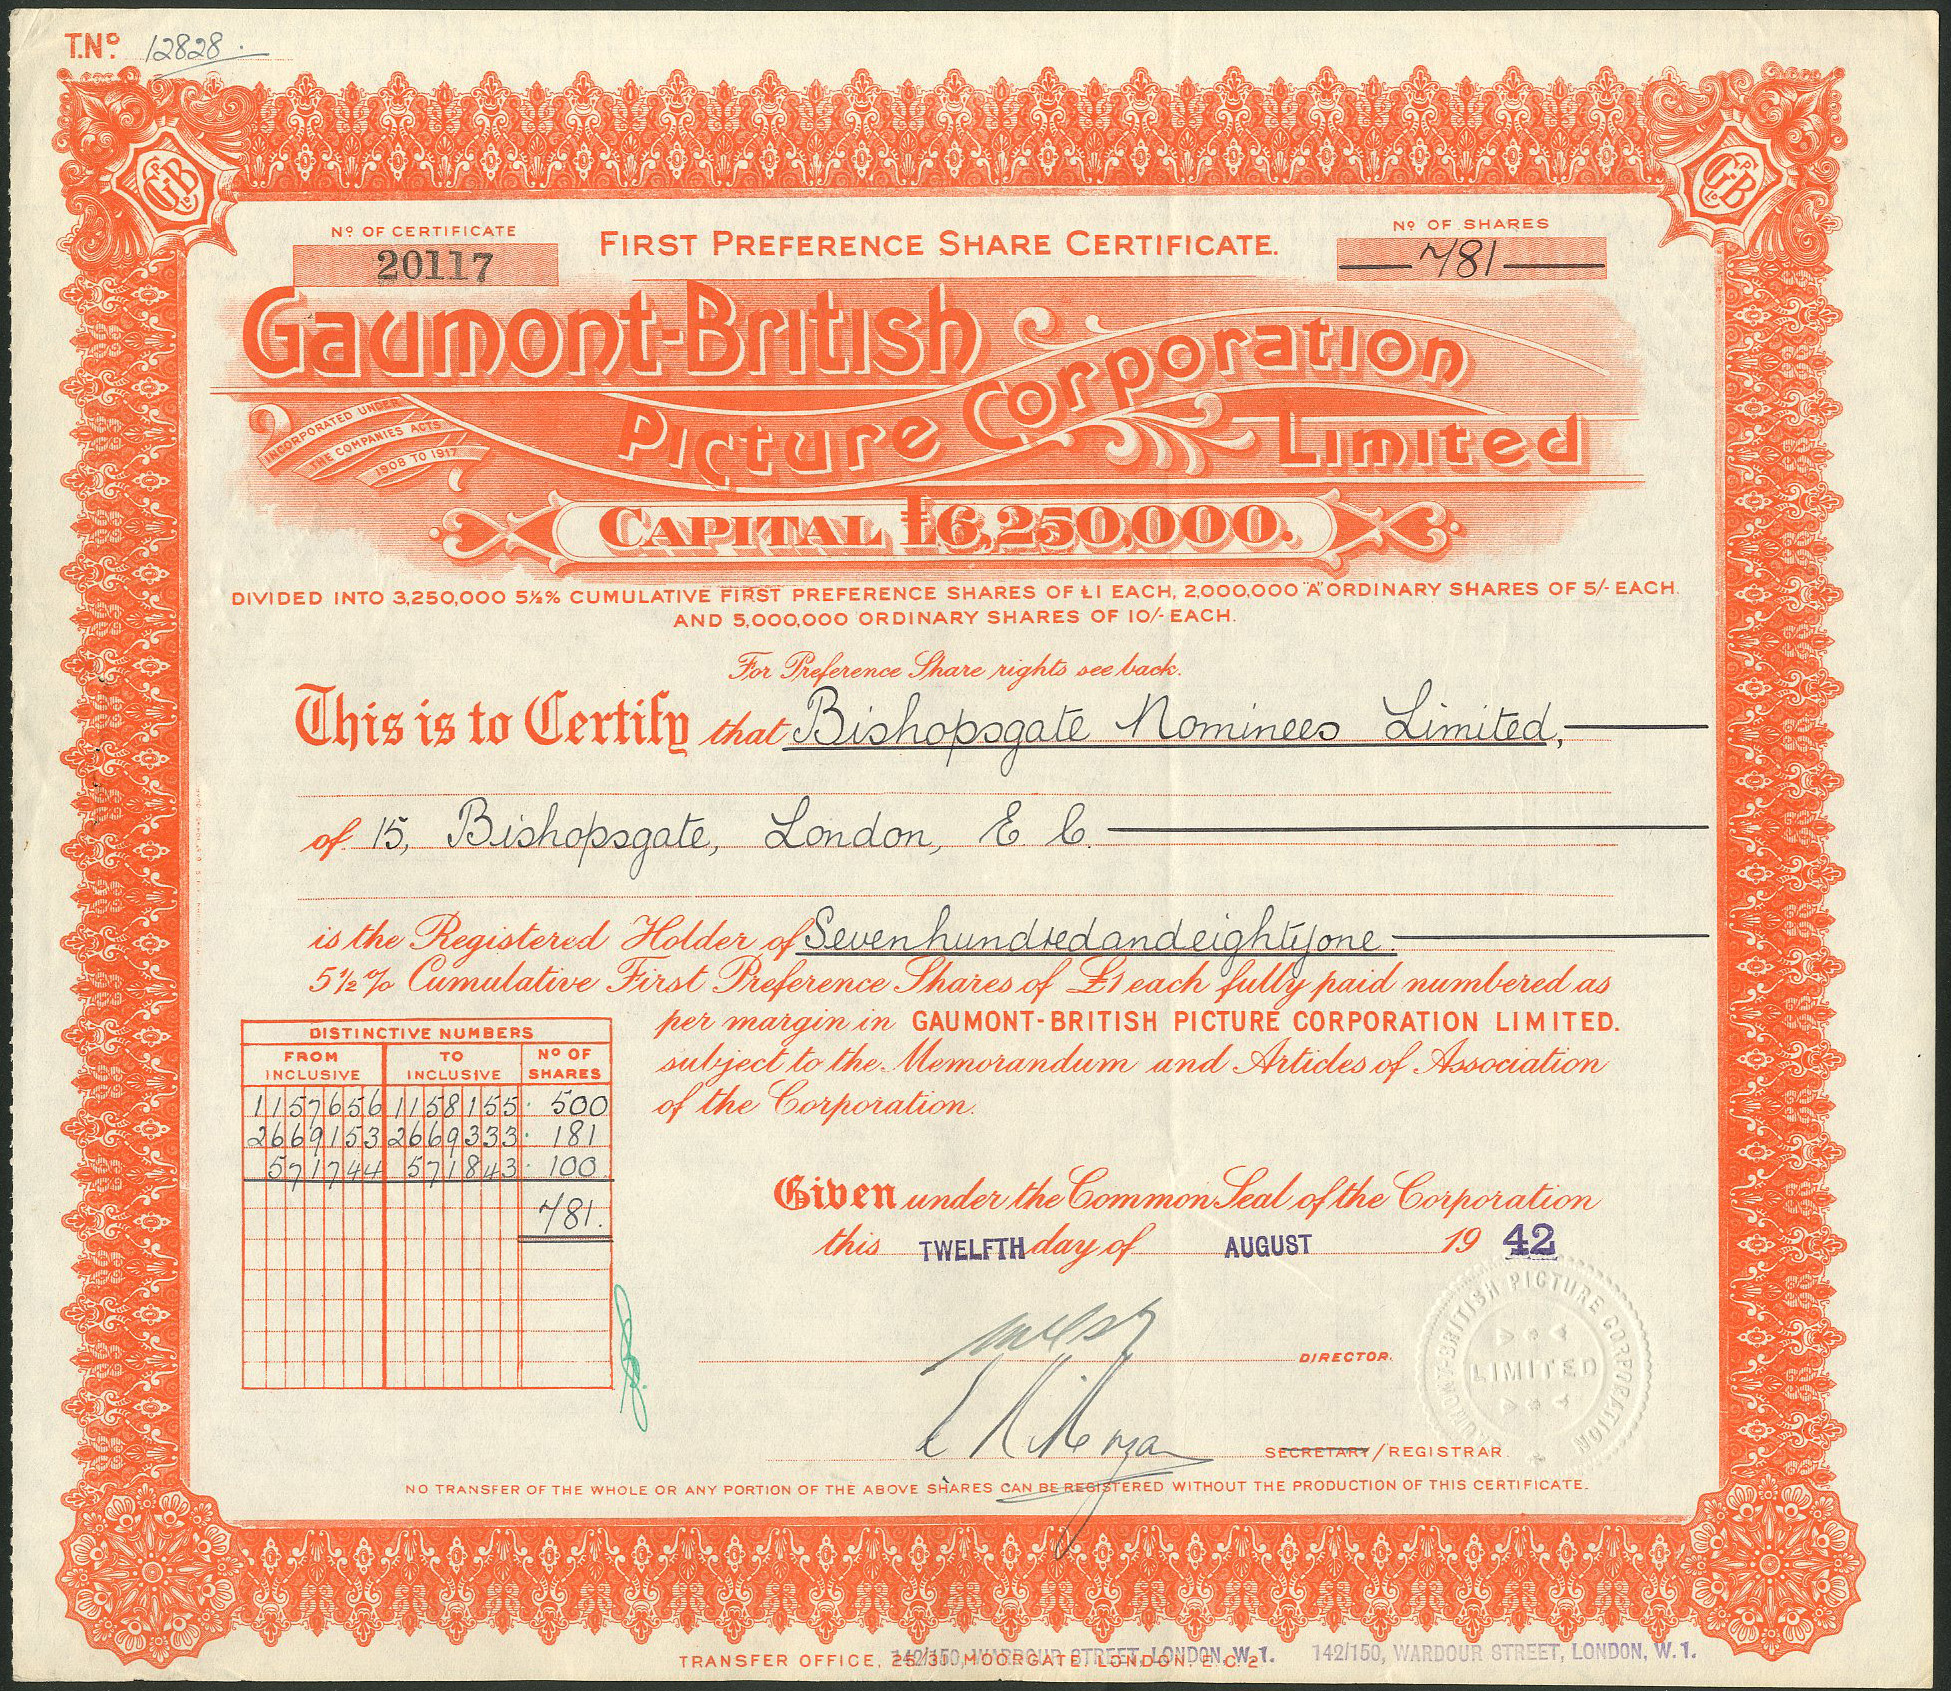 T.Nº 12828.
Nº OF CERTIFICATE
20117
FIRST PREFERENCE SHARE CERTIFICATE.
Nº OF SHARES
781
Gaumont-British
Picture Corporation
Limited
INCORPORATED UNDER
THE COMPANIES ACTS
1908 TO 1917
CAPITAL £6,250,000.
DIVIDED INTO 3,250,000 5½% CUMULATIVE FIRST PREFERENCE SHARES OF £1 EACH, 2,000,000 "A" ORDINARY SHARES OF 5/- EACH.
AND 5,000,000 ORDINARY SHARES OF 10/- EACH.
For Preference Share rights see back.
This is to Certify that Bishopsgate Nominees Limited,
of 15, Bishopsgate, London, E.C.
is the Registered Holder of Seven hundred and eighty one
5½% Cumulative First Preference Shares of £1 each fully paid numbered as
per margin in GAUMONT-BRITISH PICTURE CORPORATION LIMITED.
subject to the Memorandum and Articles of Association
of the Corporation.
DISTINCTIVE NUMBERS
FROM INCLUSIVE TO INCLUSIVE Nº OF SHARES
1157656 1158155 500
2669153 2669333 181
571744 571843 100
781.
Given under the Common Seal of the Corporation
this TWELFTH day of AUGUST 19 42
DIRECTOR.
SECRETARY/REGISTRAR.
GAUMONT-BRITISH PICTURE CORPORATION
LIMITED
NO TRANSFER OF THE WHOLE OR ANY PORTION OF THE ABOVE SHARES CAN BE REGISTERED WITHOUT THE PRODUCTION OF THIS CERTIFICATE.
TRANSFER OFFICE, 25/31, MOORGATE, LONDON, E.C.2
142/150, WARDOUR STREET, LONDON, W.1.
142/150, WARDOUR STREET, LONDON, W.1.